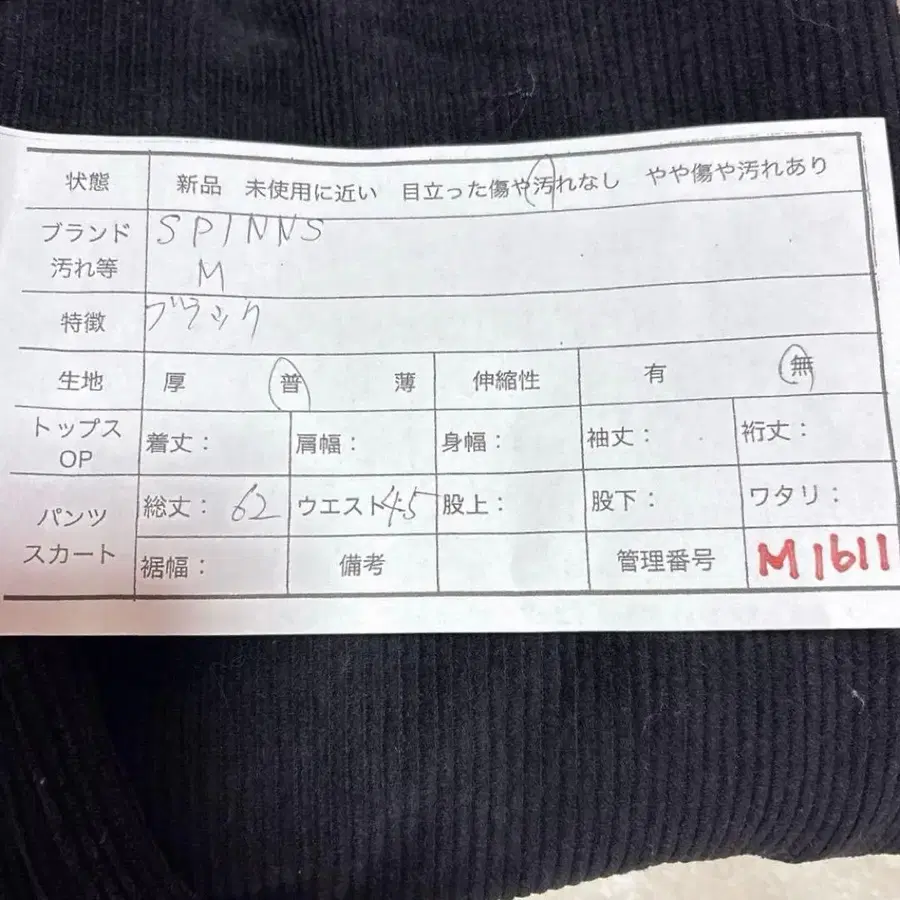 状態 新品 未使用に近い 目立った傷や汚れなし やや傷や汚れあり
ブランド SPINNS
汚れ等 M
特徴 ブラック
生地 厚 普 薄 伸縮性 有 無
トップス OP 着丈: 肩幅: 身幅: 袖丈: 裄丈:
パンツ スカート 総丈: 62 ウエスト 45 股上: 股下: ワタリ:
裾幅: 備考 管理番号 M1611